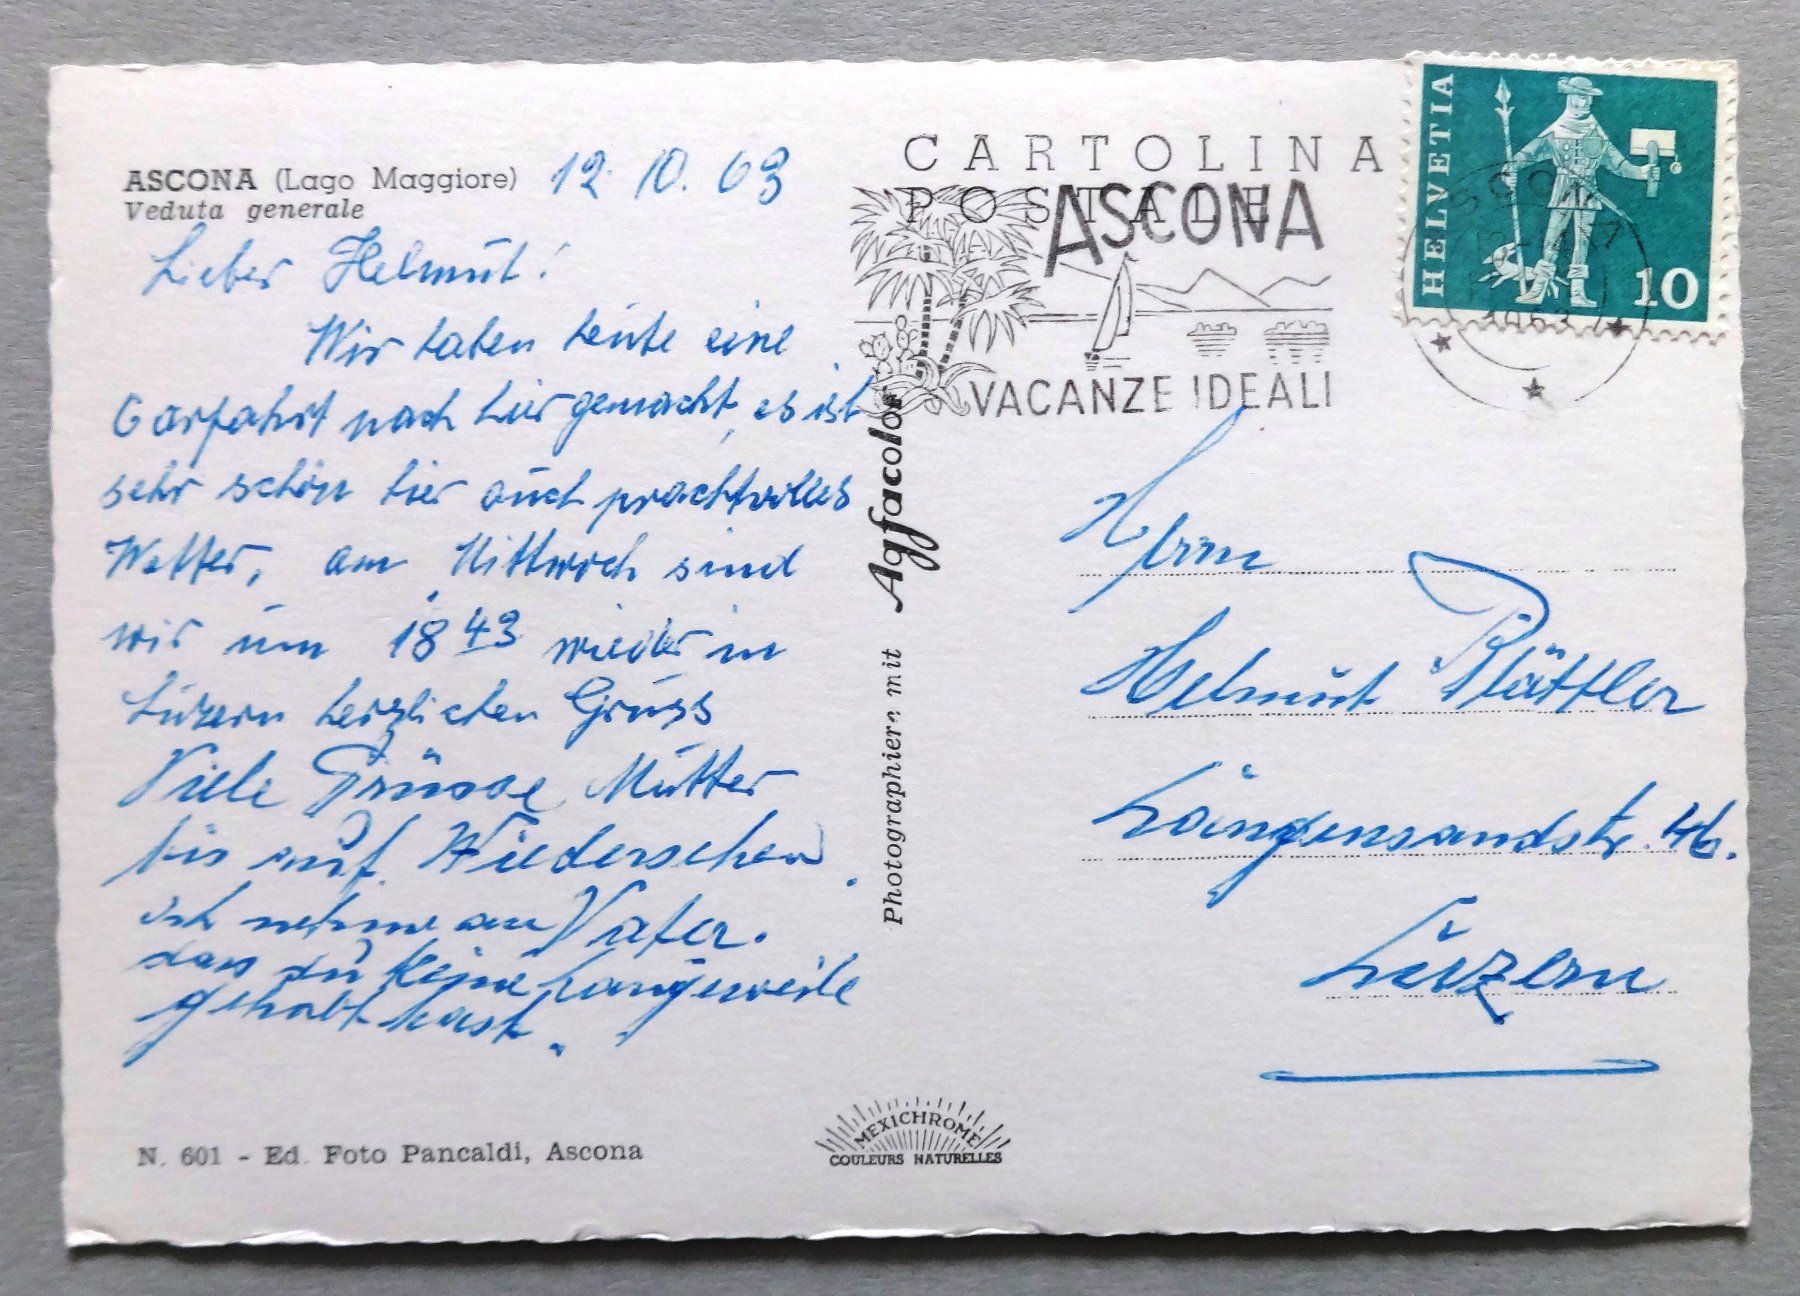 ASCONA (Lago Maggiore) 12. 10. 63
Veduta generale
Lieber Helmut!
Wir haben heute eine
Carfahrt nach hier gemacht, es ist
sehr schön hier auch prachtvolles
Wetter, am Mittwoch sind
wir um 18 43 wieder in
Luzern herzlichen Gruss
Viele Grüsse Mutter
bis auf Wiedersehen.
ich nehme an Vater.
dass du keine Langeweile
gehabt hast.
N. 601 - Ed. Foto Pancaldi, Ascona
Photographieren mit Agfacolor
MEXICHROME
COULEURS NATURELLES
CARTOLINA
POSTALE
ASCONA
VACANZE IDEALI
HELVETIA
10
ASCONA
1963
Herrn
Helmut Blättler
Längensandstr. 46.
Luzern